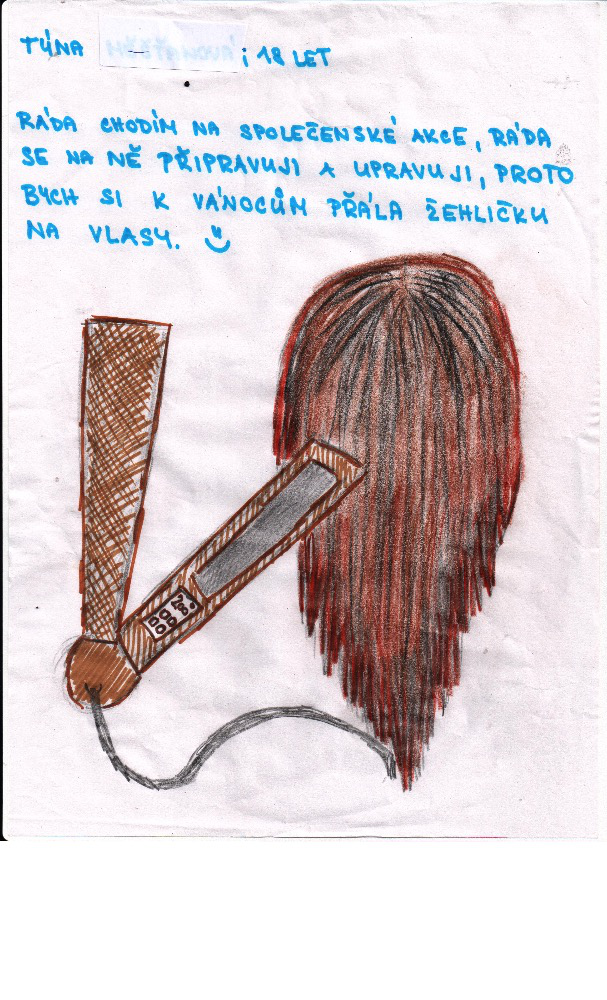 TÝNA ; 18 LET
RÁDA CHODÍM NA SPOLEČENSKÉ AKCE, RÁDA
SE NA NĚ PŘIPRAVUJI A UPRAVUJI, PROTO
BYCH SI K VÁNOCŮM PŘÁLA ŽEHLIČKU
NA VLASY.